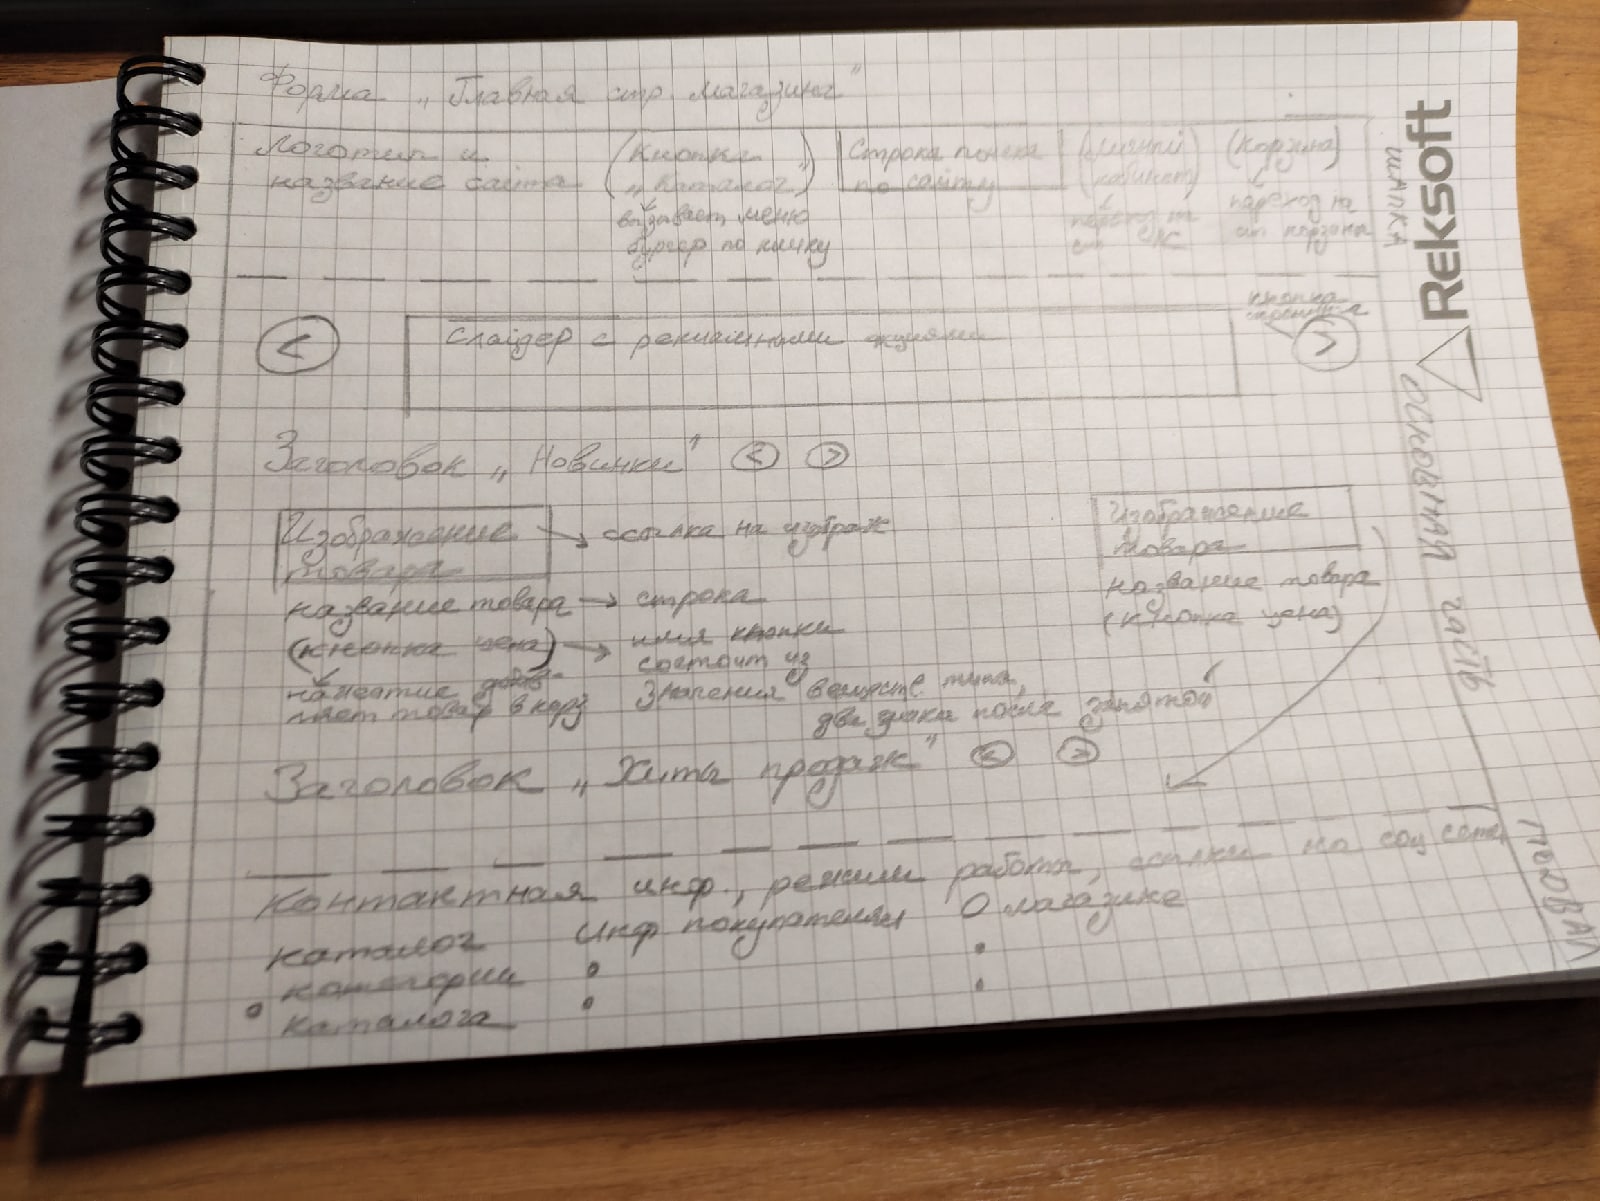 Форма „Главная стр. магазина"
Логотип и
название сайта
(Кнопка
„Каталог")
вызывает меню
бургер по клику
Строка поиска
по сайту
(личный
кабинет)
переход на
ст ЛК
(Корзина)
переход на
ст корзины
ШАПКА
Reksoft
<
Слайдер с рекламными акциями
кнопка
>
ОСНОВНАЯ ЧАСТЬ
Заголовок „Новинки" < >
Изображение
товара
→ ссылка на изображ
название товара → строка
(кнопка цена) → имя кнопки
состоит из
значения веществ. типа,
два знака после запятой
нажатие доба-
вляет товар в корз
Изображение
товара
название товара
(кнопка цена)
Заголовок „Хиты продаж" < >
Контактная инф., режим работы, ссылки на соц сети
каталог
• категории
каталога
Инф покупателям
•
•
О магазине
•
•
ПОДВАЛ